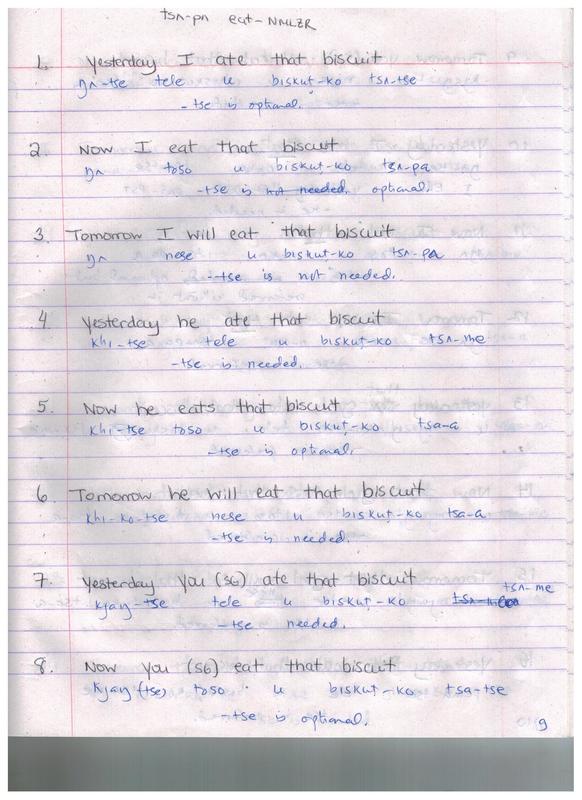 tsʌ-pʌ eat-NMLZR
1. Yesterday I ate that biscuit
ŋʌ-tse tele u biskuṭ-ko tsʌ-tse
-tse is optional.
2. Now I eat that biscuit
ŋʌ toso u biskuṭ-ko tsʌ-pa
-tse is not needed. optional.
3. Tomorrow I will eat that biscuit
ŋʌ nese u biskuṭ-ko tsʌ-pa
-tse is not needed.
4. Yesterday he ate that biscuit
khi-tse tele u biskuṭ-ko tsʌ-me
-tse is needed.
5. Now he eats that biscuit
khi-tse toso u biskuṭ-ko tsa-a
-tse is optional.
6. Tomorrow he will eat that biscuit
khi-ko-tse nese u biskuṭ-ko tsa-a
-tse is needed.
7. Yesterday you (SG) ate that biscuit
kjaŋ-tse tele u biskuṭ-ko tsʌ-me
-tse needed.
8. Now you (SG) eat that biscuit
kjaŋ (tse) toso u biskuṭ-ko tsa-tse
-tse is optional.
9